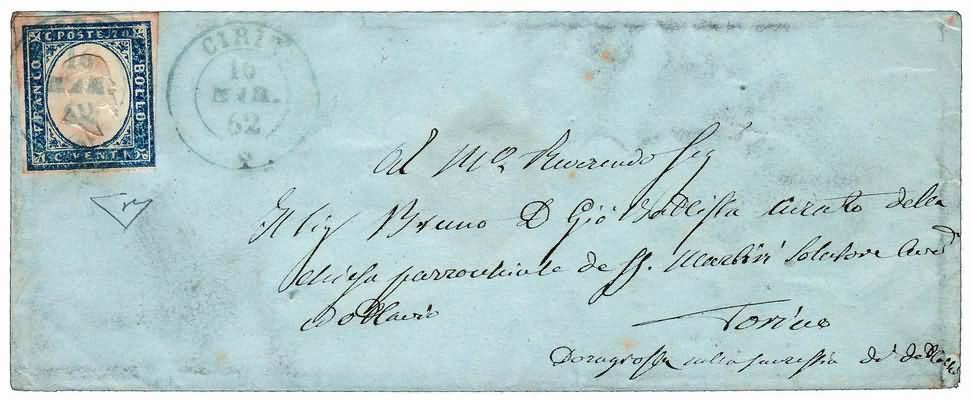 C. POSTE 20
FRANCO
BOLLO
C. VENTI
16
MAR.
62
CIRIÈ
16
MAR.
62
Al M° Reverendo Sig
Il Sig Bruno D Gio Battista curato della
chiesa parrocchiale de SS. Martiri Solutore Av
ed Ottavio
Torino
Doragrossa sulla